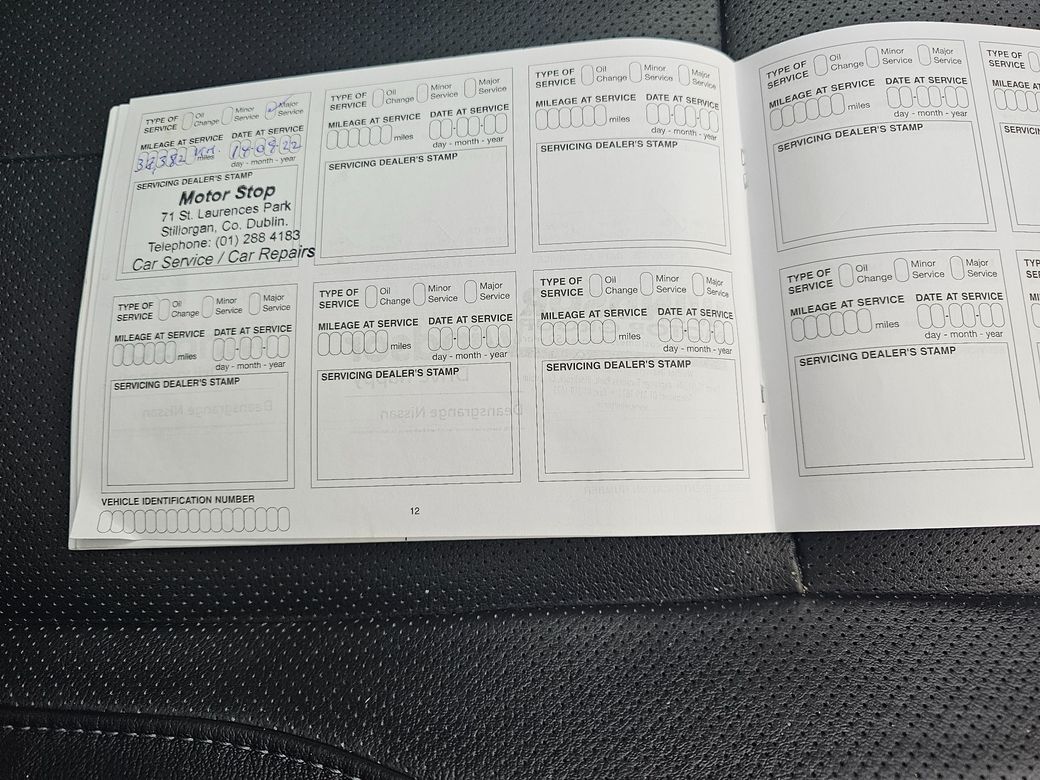 TYPE OF SERVICE Oil Change Minor Service Major Service
MILEAGE AT SERVICE DATE AT SERVICE
miles 14 09 22
day - month - year
SERVICING DEALER'S STAMP
Motor Stop
71 St. Laurences Park
Stillorgan, Co. Dublin.
Telephone: (01) 288 4183
Car Service / Car Repairs
TYPE OF SERVICE Oil Change Minor Service Major Service
MILEAGE AT SERVICE DATE AT SERVICE
miles
day - month - year
SERVICING DEALER'S STAMP
TYPE OF SERVICE Oil Change Minor Service Major Service
MILEAGE AT SERVICE DATE AT SERVICE
miles
day - month - year
SERVICING DEALER'S STAMP
TYPE OF SERVICE Oil Change Minor Service Major Service
MILEAGE AT SERVICE DATE AT SERVICE
miles
day - month - year
SERVICING DEALER'S STAMP
TYPE OF SERVICE Oil Change Minor Service Major Service
MILEAGE AT SERVICE DATE AT SERVICE
miles
day - month - year
SERVICING DEALER'S STAMP
TYPE OF SERVICE Oil Change Minor Service Major Service
MILEAGE AT SERVICE DATE AT SERVICE
miles
day - month - year
SERVICING DEALER'S STAMP
VEHICLE IDENTIFICATION NUMBER
12
TYPE OF SERVICE Oil Change Minor Service Major Service
MILEAGE AT SERVICE DATE AT SERVICE
miles
day - month - year
SERVICING DEALER'S STAMP
TYPE OF SERVICE Oil
MILEAGE
SERVICIN
TYPE OF SERVICE Oil Change Minor Service Major Service
MILEAGE AT SERVICE DATE AT SERVICE
miles
day - month - year
SERVICING DEALER'S STAMP